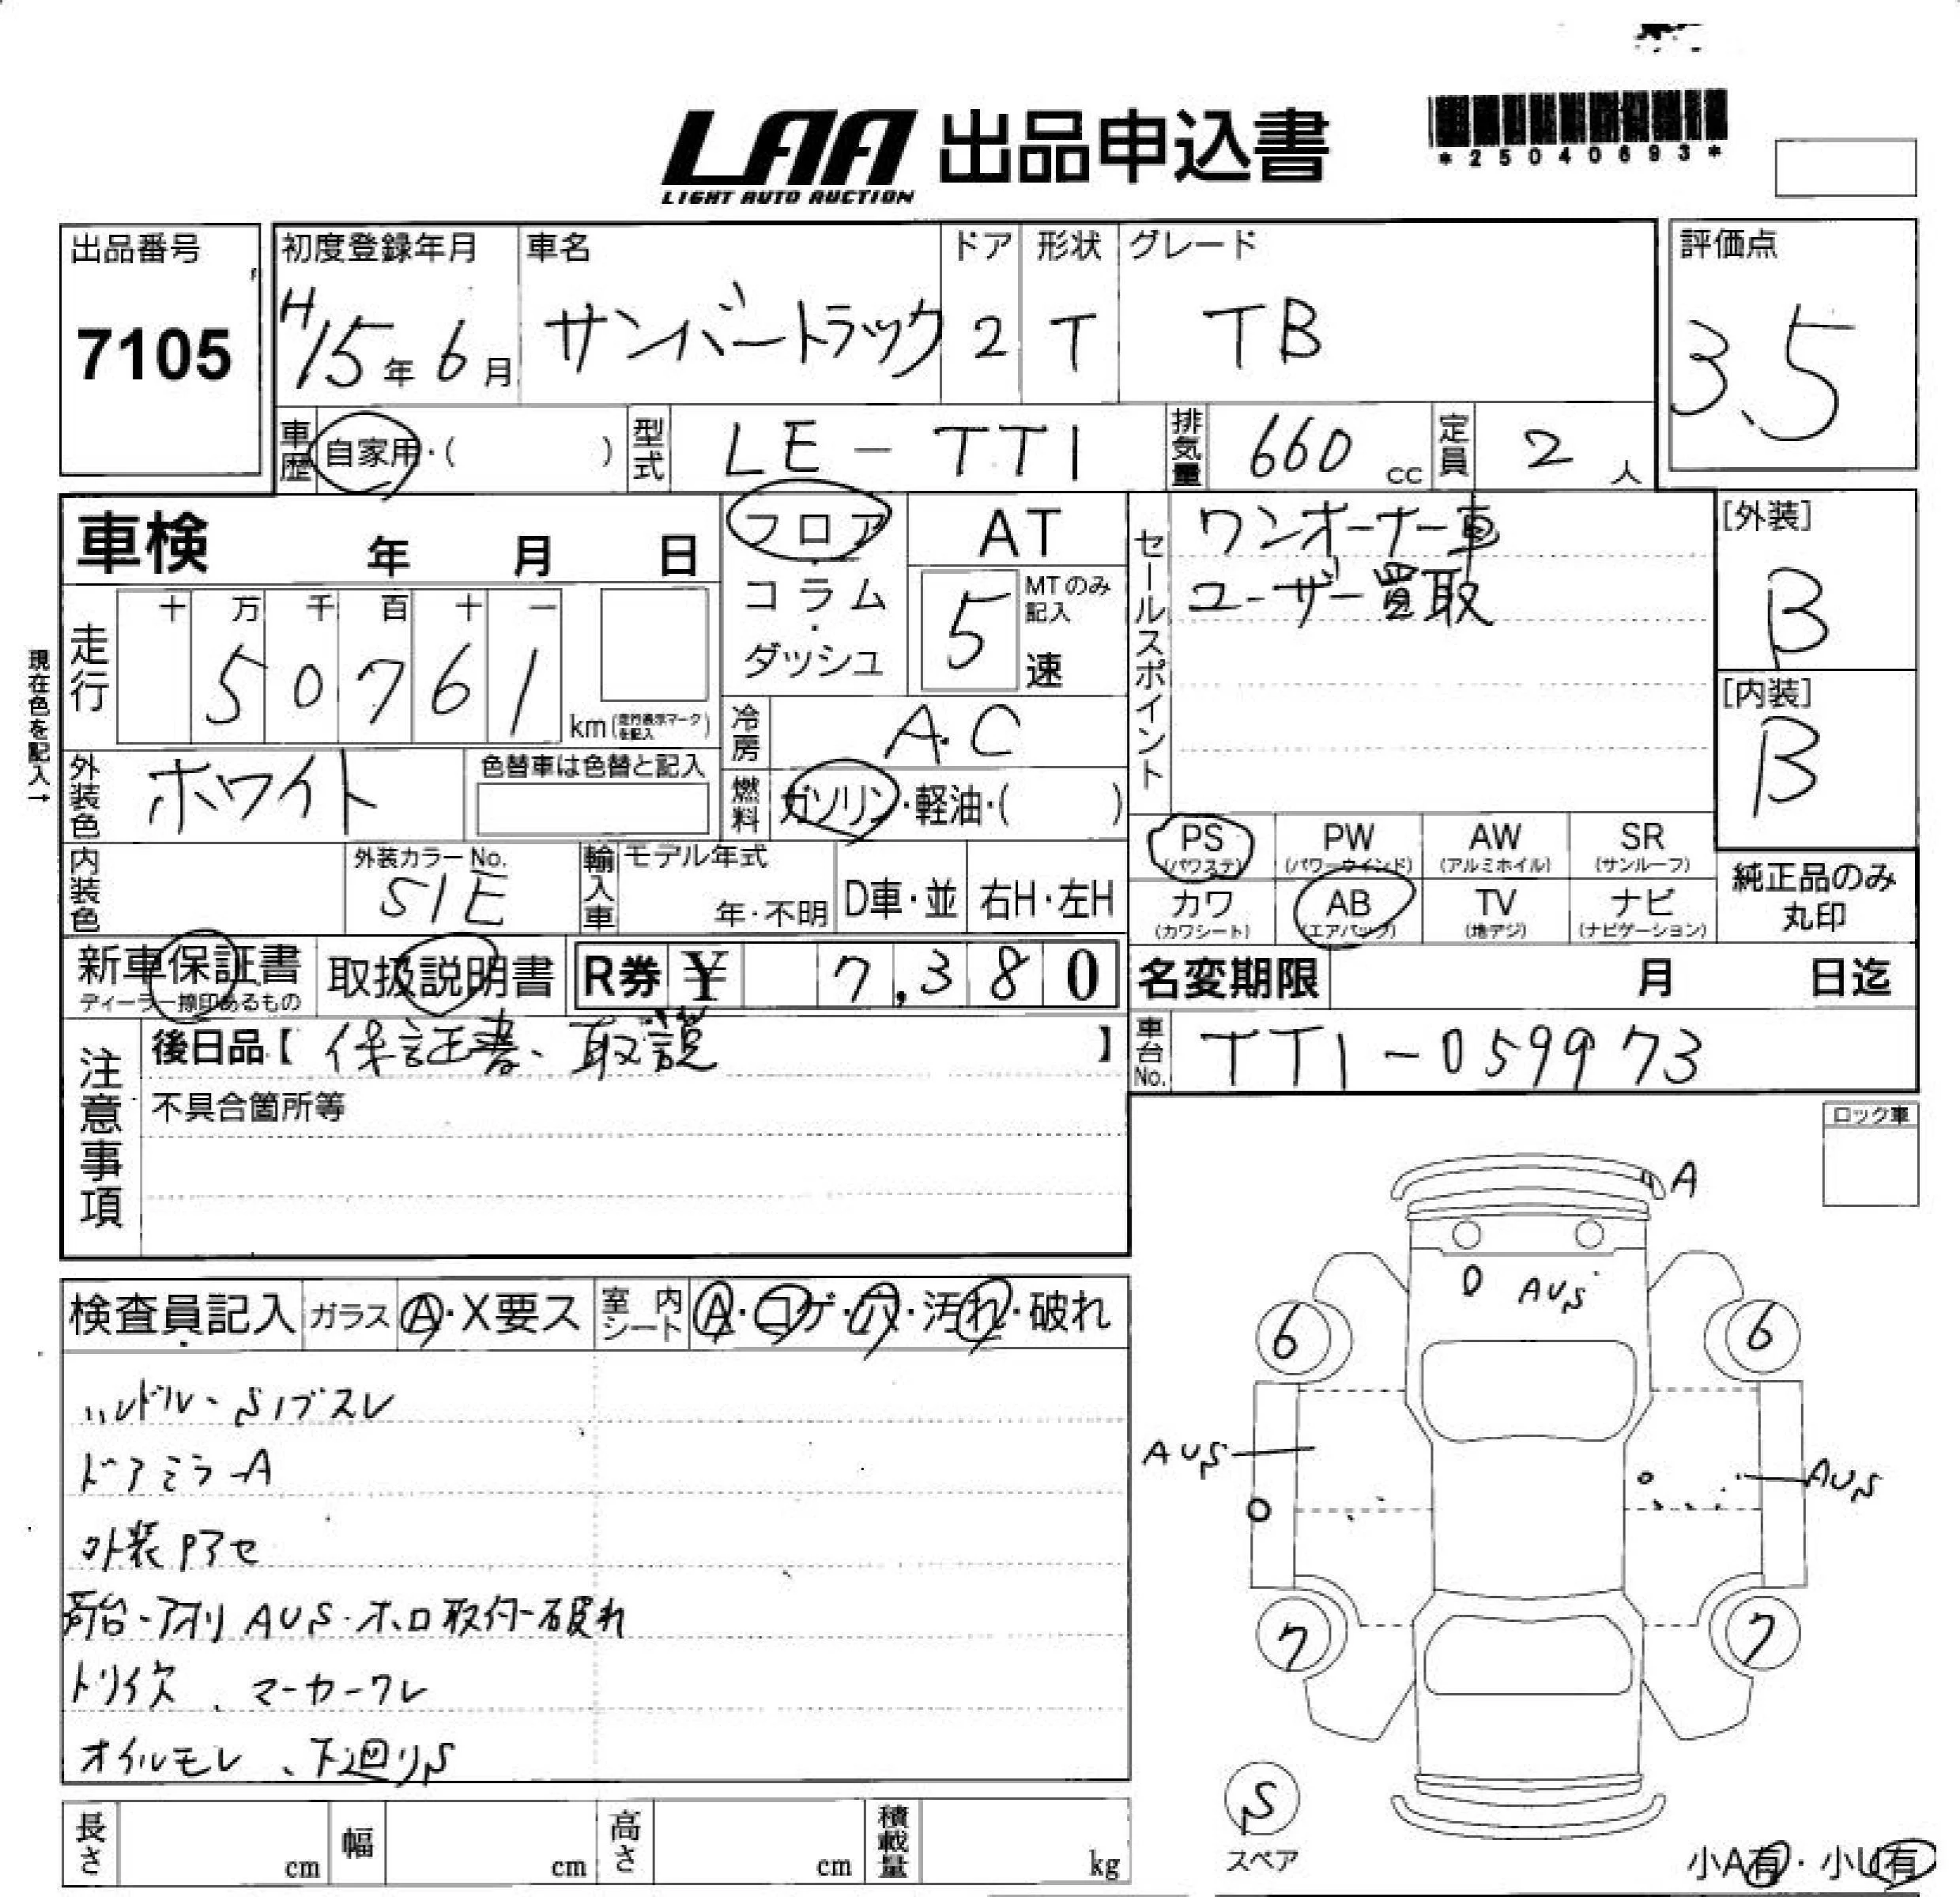 LAA 出品申込書
LIGHT AUTO AUCTION
*25040693*
出品番号
7105
初度登録年月
H15年6月
車名
サンバートラック
ドア
2
形状
T
グレード
TB
評価点
3.5
車歴
自家用・( )
型式
LE-TT1
排気量
660 cc
定員
2 人
車検 年 月 日
フロア・コラム・ダッシュ
AT
5
MTのみ記入
速
セールスポイント
ワンオーナー車
ユーザー買取
[外装]
B
[内装]
B
現在色を記入→
走行
十 万 千 百 十 一
5 0 7 6 1
km(走行表示マークを記入)
冷房
A.C
燃料
ガソリン・軽油・( )
外装色
ホワイト
色替車は色替と記入
内装色
外装カラーNo.
51E
輸入車
モデル年式
年・不明
D車・並
右H・左H
PS (パワステ)
PW (パワーウインド)
AW (アルミホイル)
SR (サンルーフ)
カワ (カワシート)
AB (エアバック)
TV (地デジ)
ナビ (ナビゲーション)
純正品のみ
丸印
新車保証書
ディーラー捺印あるもの
取扱説明書
R券 ¥ 7,380
名変期限 月 日迄
注意事項
後日品【 保証書、取説 】
車台No.
TT1-059973
不具合箇所等
ロック車
検査員記入
ガラス
A・X要ス
室内シート
A・コゲ・穴・汚れ・破れ
ハンドル、S1ブスレ
ドアミラーA
外装Pアセ
荷台・アオリAUS・ホロ取付・破れ
トリイ次、マーカーワレ
オイルモレ、下廻りS
A
AUS
6
6
AUS
AUS
7
7
S
スペア
小A有・小U有
長さ cm
幅 cm
高さ cm
積載量 kg